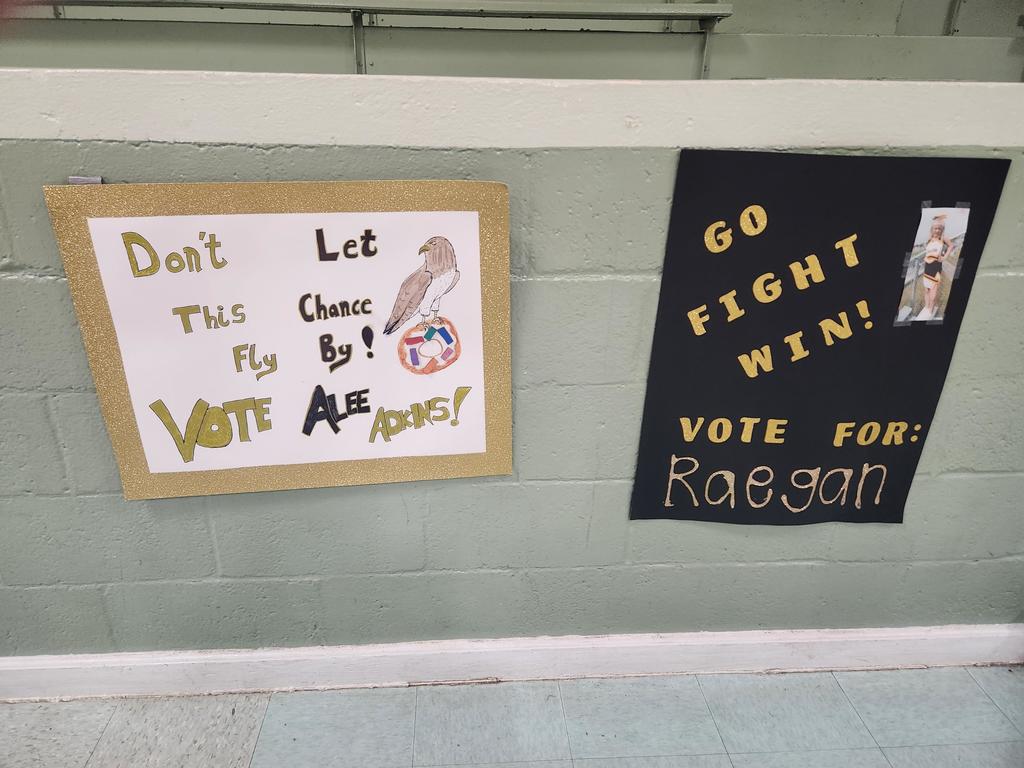 Don't Let
This Chance
Fly By!
VOTE ALEE ADKINS!
GO
FIGHT
WIN!
VOTE FOR:
Raegan